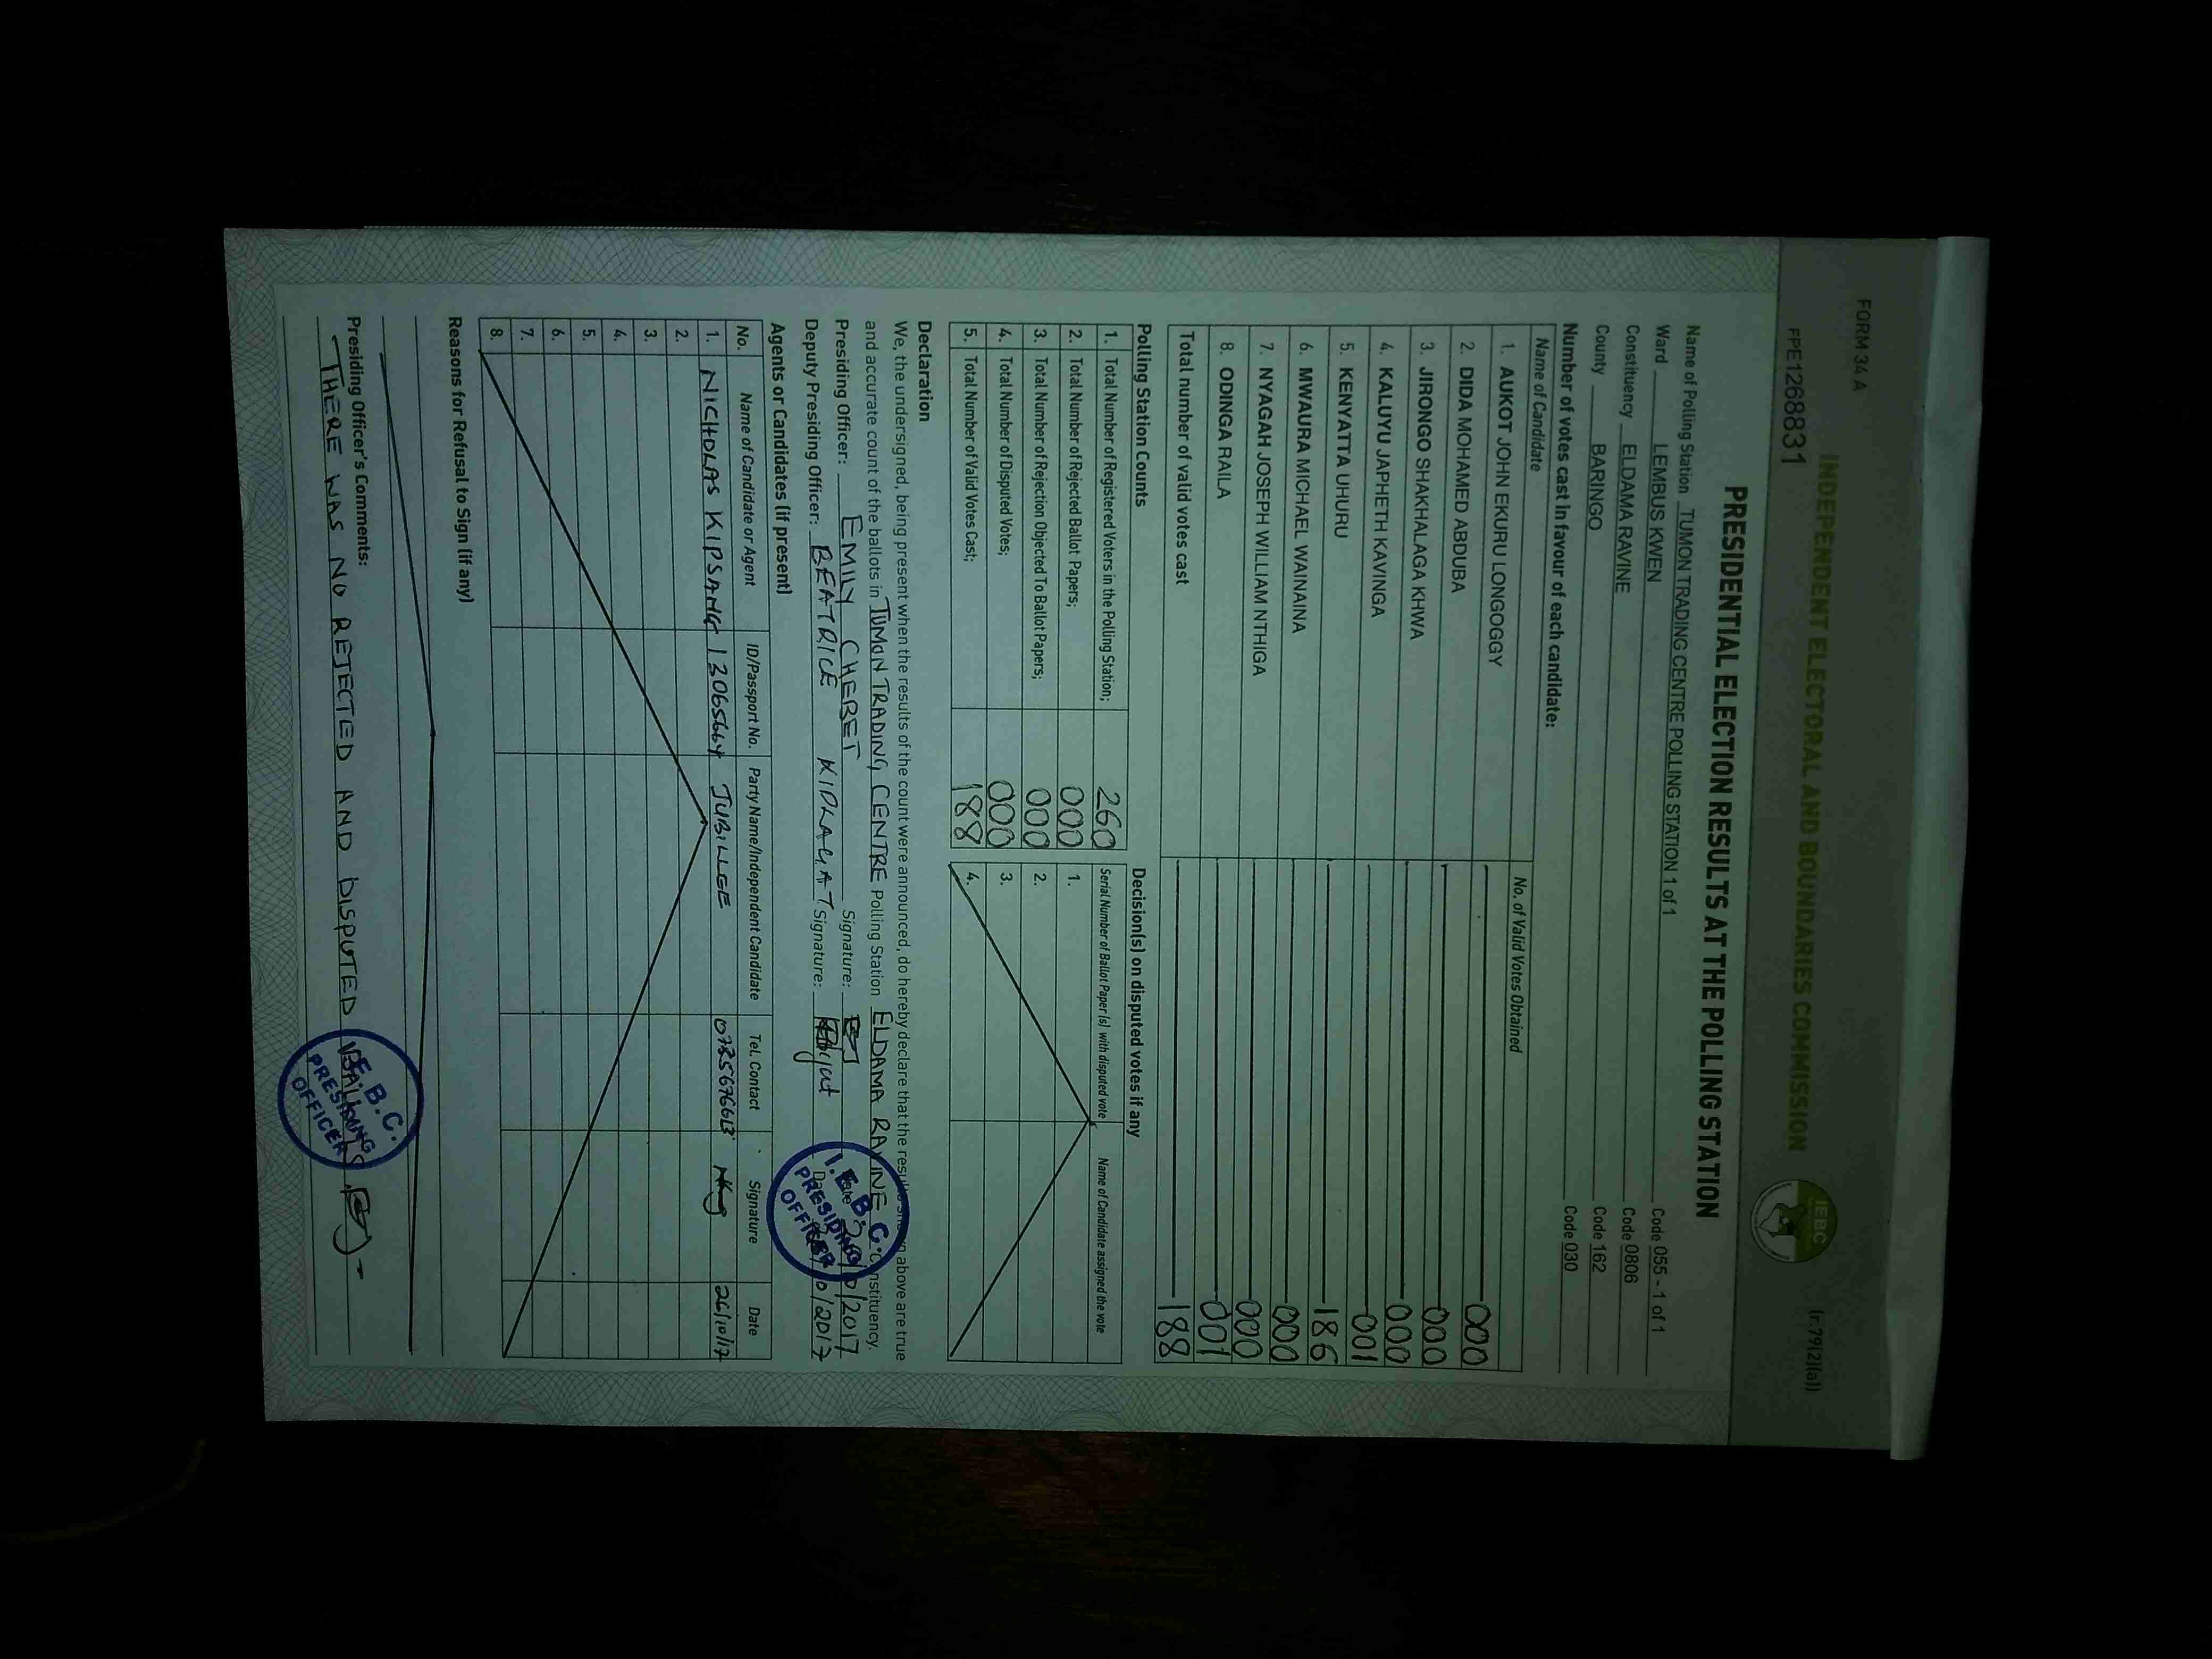 FORM 34 A
(r.79(2)(a))
INDEPENDENT ELECTORAL AND BOUNDARIES COMMISSION
IEBC
FPE1268831
PRESIDENTIAL ELECTION RESULTS AT THE POLLING STATION
Name of Polling Station TUMON TRADING CENTRE POLLING STATION 1 of 1 Code 055 - 1 of 1
Ward LEMBUS KWEN Code 0806
Constituency ELDAMA RAVINE Code 162
County BARINGO Code 030
Number of votes cast in favour of each candidate:
Name of Candidate No. of Valid Votes Obtained
1. AUKOT JOHN EKURU LONGOGGY 000
2. DIDA MOHAMED ABDUBA 000
3. JIRONGO SHAKHALAGA KHWA 000
4. KALUYU JAPHETH KAVINGA 001
5. KENYATTA UHURU 186
6. MWAURA MICHAEL WAINAINA 000
7. NYAGAH JOSEPH WILLIAM NTHIGA 000
8. ODINGA RAILA 001
Total number of valid votes cast 188
Polling Station Counts
1. Total Number of Registered Voters in the Polling Station; 260
2. Total Number of Rejected Ballot Papers; 000
3. Total Number of Rejection Objected To Ballot Papers; 000
4. Total Number of Disputed Votes; 000
5. Total Number of Valid Votes Cast; 188
Decision(s) on disputed votes if any
Serial Number of Ballot Paper(s) with disputed vote Name of Candidate assigned the vote
1.
2.
3.
4.
Declaration
We, the undersigned, being present when the results of the count were announced, do hereby declare that the results shown above are true
and accurate count of the ballots in TUMON TRADING CENTRE Polling Station ELDAMA RAVINE Constituency.
Presiding Officer: EMILY CHEBET Signature: Date /10/2017
Deputy Presiding Officer: BEATRICE Signature: Date /10/2017
I.E.B.C.
PRESIDING
OFFICER
Agents or Candidates (if present)
No. Name of Candidate or Agent ID/Passport No. Party Name/Independent Candidate Tel. Contact Signature Date
1. NICHOLAS KIPSANG 13065664 JUBILEE 26/10/17
2.
3.
4.
5.
6.
7.
8.
Reasons for Refusal to Sign (if any)
Presiding Officer's Comments:
THERE WAS NO REJECTED AND DISPUTED BALLOTS
I.E.B.C.
PRESIDING
OFFICER